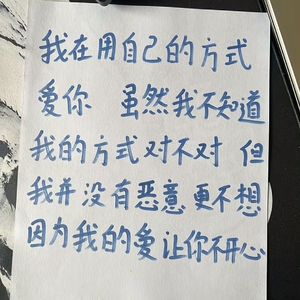 我在用自己的方式
爱你 虽然我不知道
我的方式对不对 但
我并没有恶意 更不想
因为我的爱 让你不开心